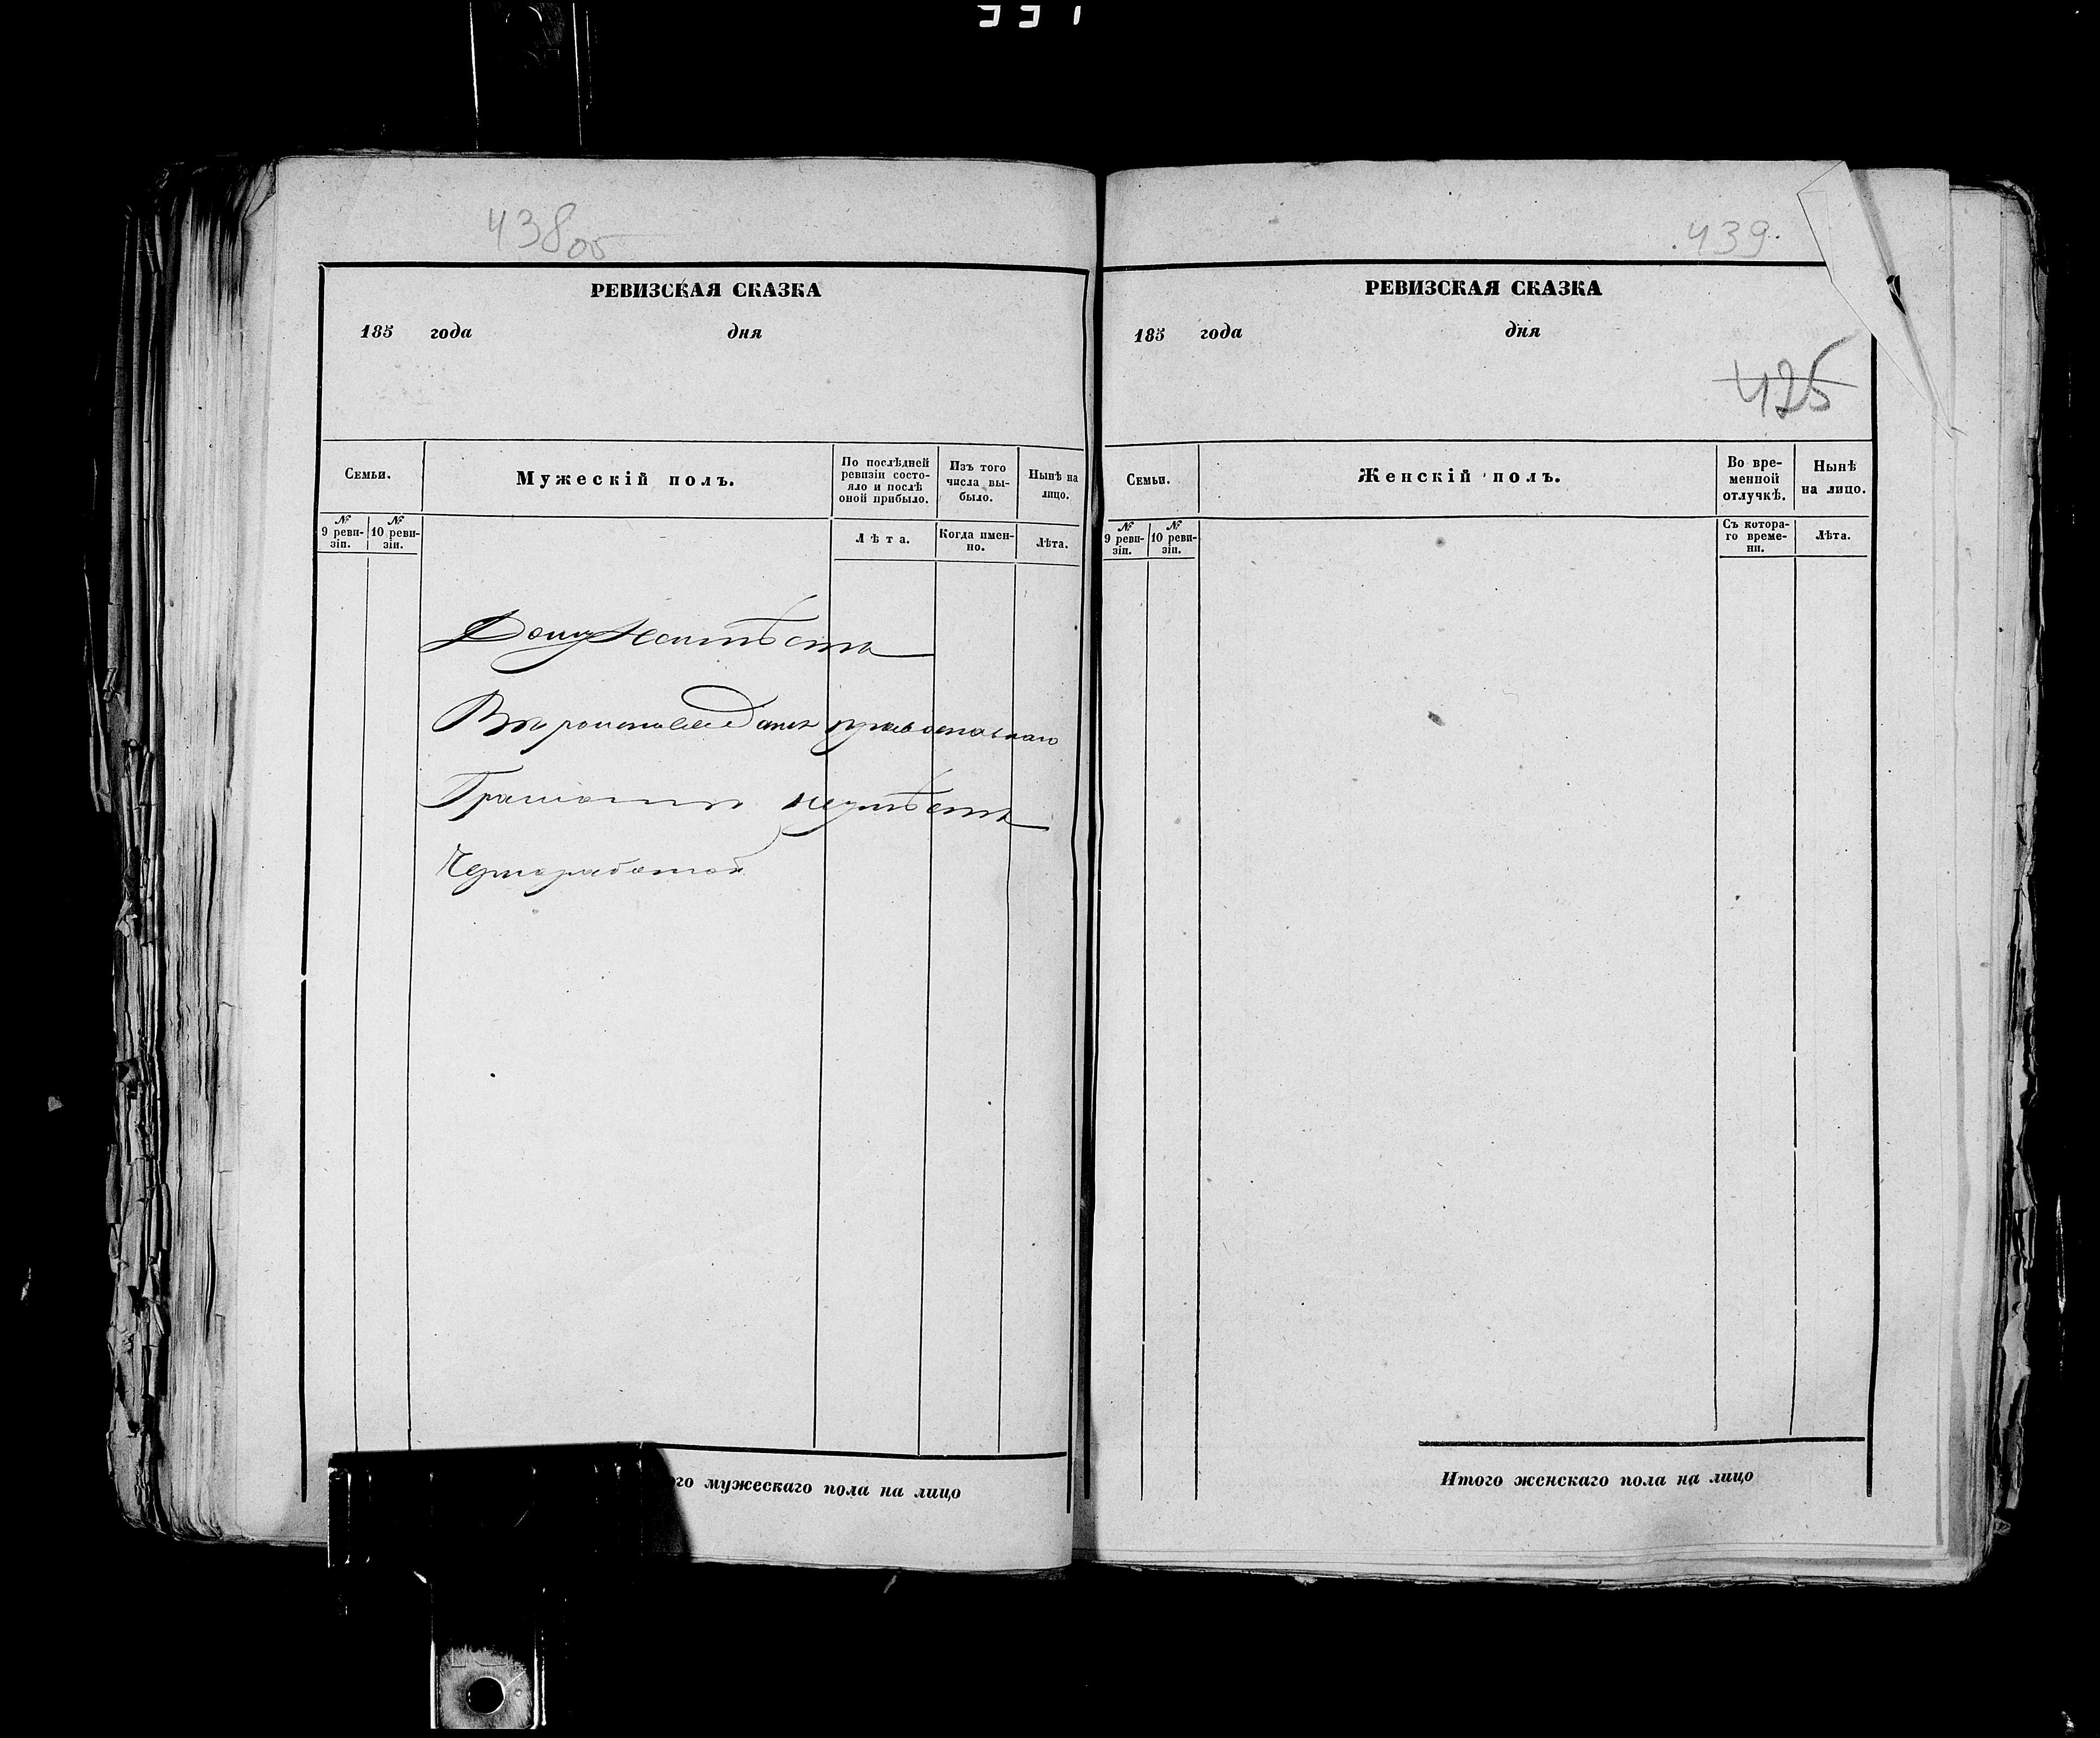 438 об
РЕВИЗСКАЯ СКАЗКА
185 года дня
Семьи.
Мужескій полъ.
По послѣдней
ревизіи состо-
яло и послѣ
оной прибыло.
Изъ того
числа вы-
было.
Нынѣ на
лицо.
№
9 реви-
зіи.
№
10 реви-
зіи.
Лѣта.
Когда имен-
но.
Лѣта.
Дому неимѣетъ
Вѣроисповеданія православнаго
Грамоты неумѣетъ
Чернорабочій
го мужескаго пола на лицо
439
РЕВИЗСКАЯ СКАЗКА
185 года дня
425
Семьи.
Женскій полъ.
Во вре-
менной
отлучкѣ.
Нынѣ
на лицо.
№
9 реви-
зіи.
№
10 реви-
зіи.
Съ котора-
го време-
ни.
Лѣта.
Итого женскаго пола на лицо